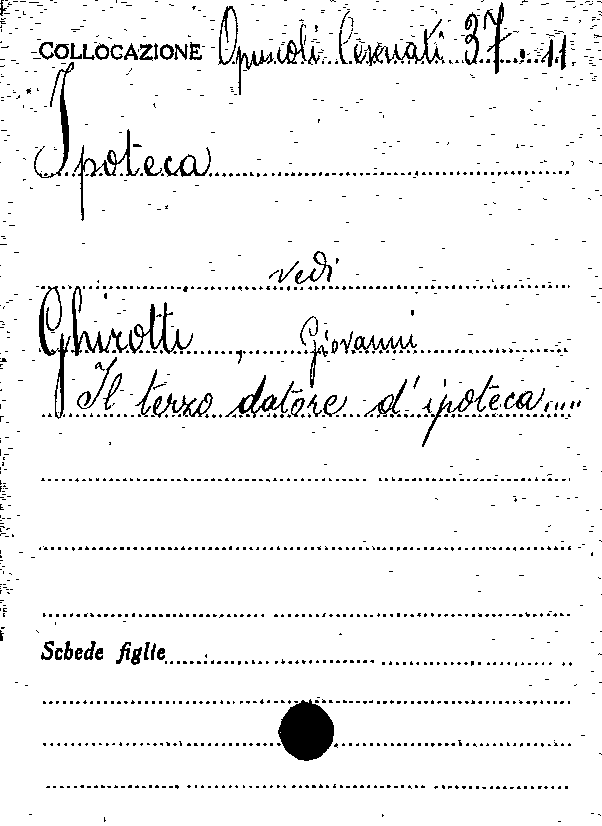 COLLOCAZIONE Opuscoli Cesenati 37.11
Ipoteca
vedi
Ghirotti, Giovanni
Il terzo datore d'ipoteca....
Schede figlie